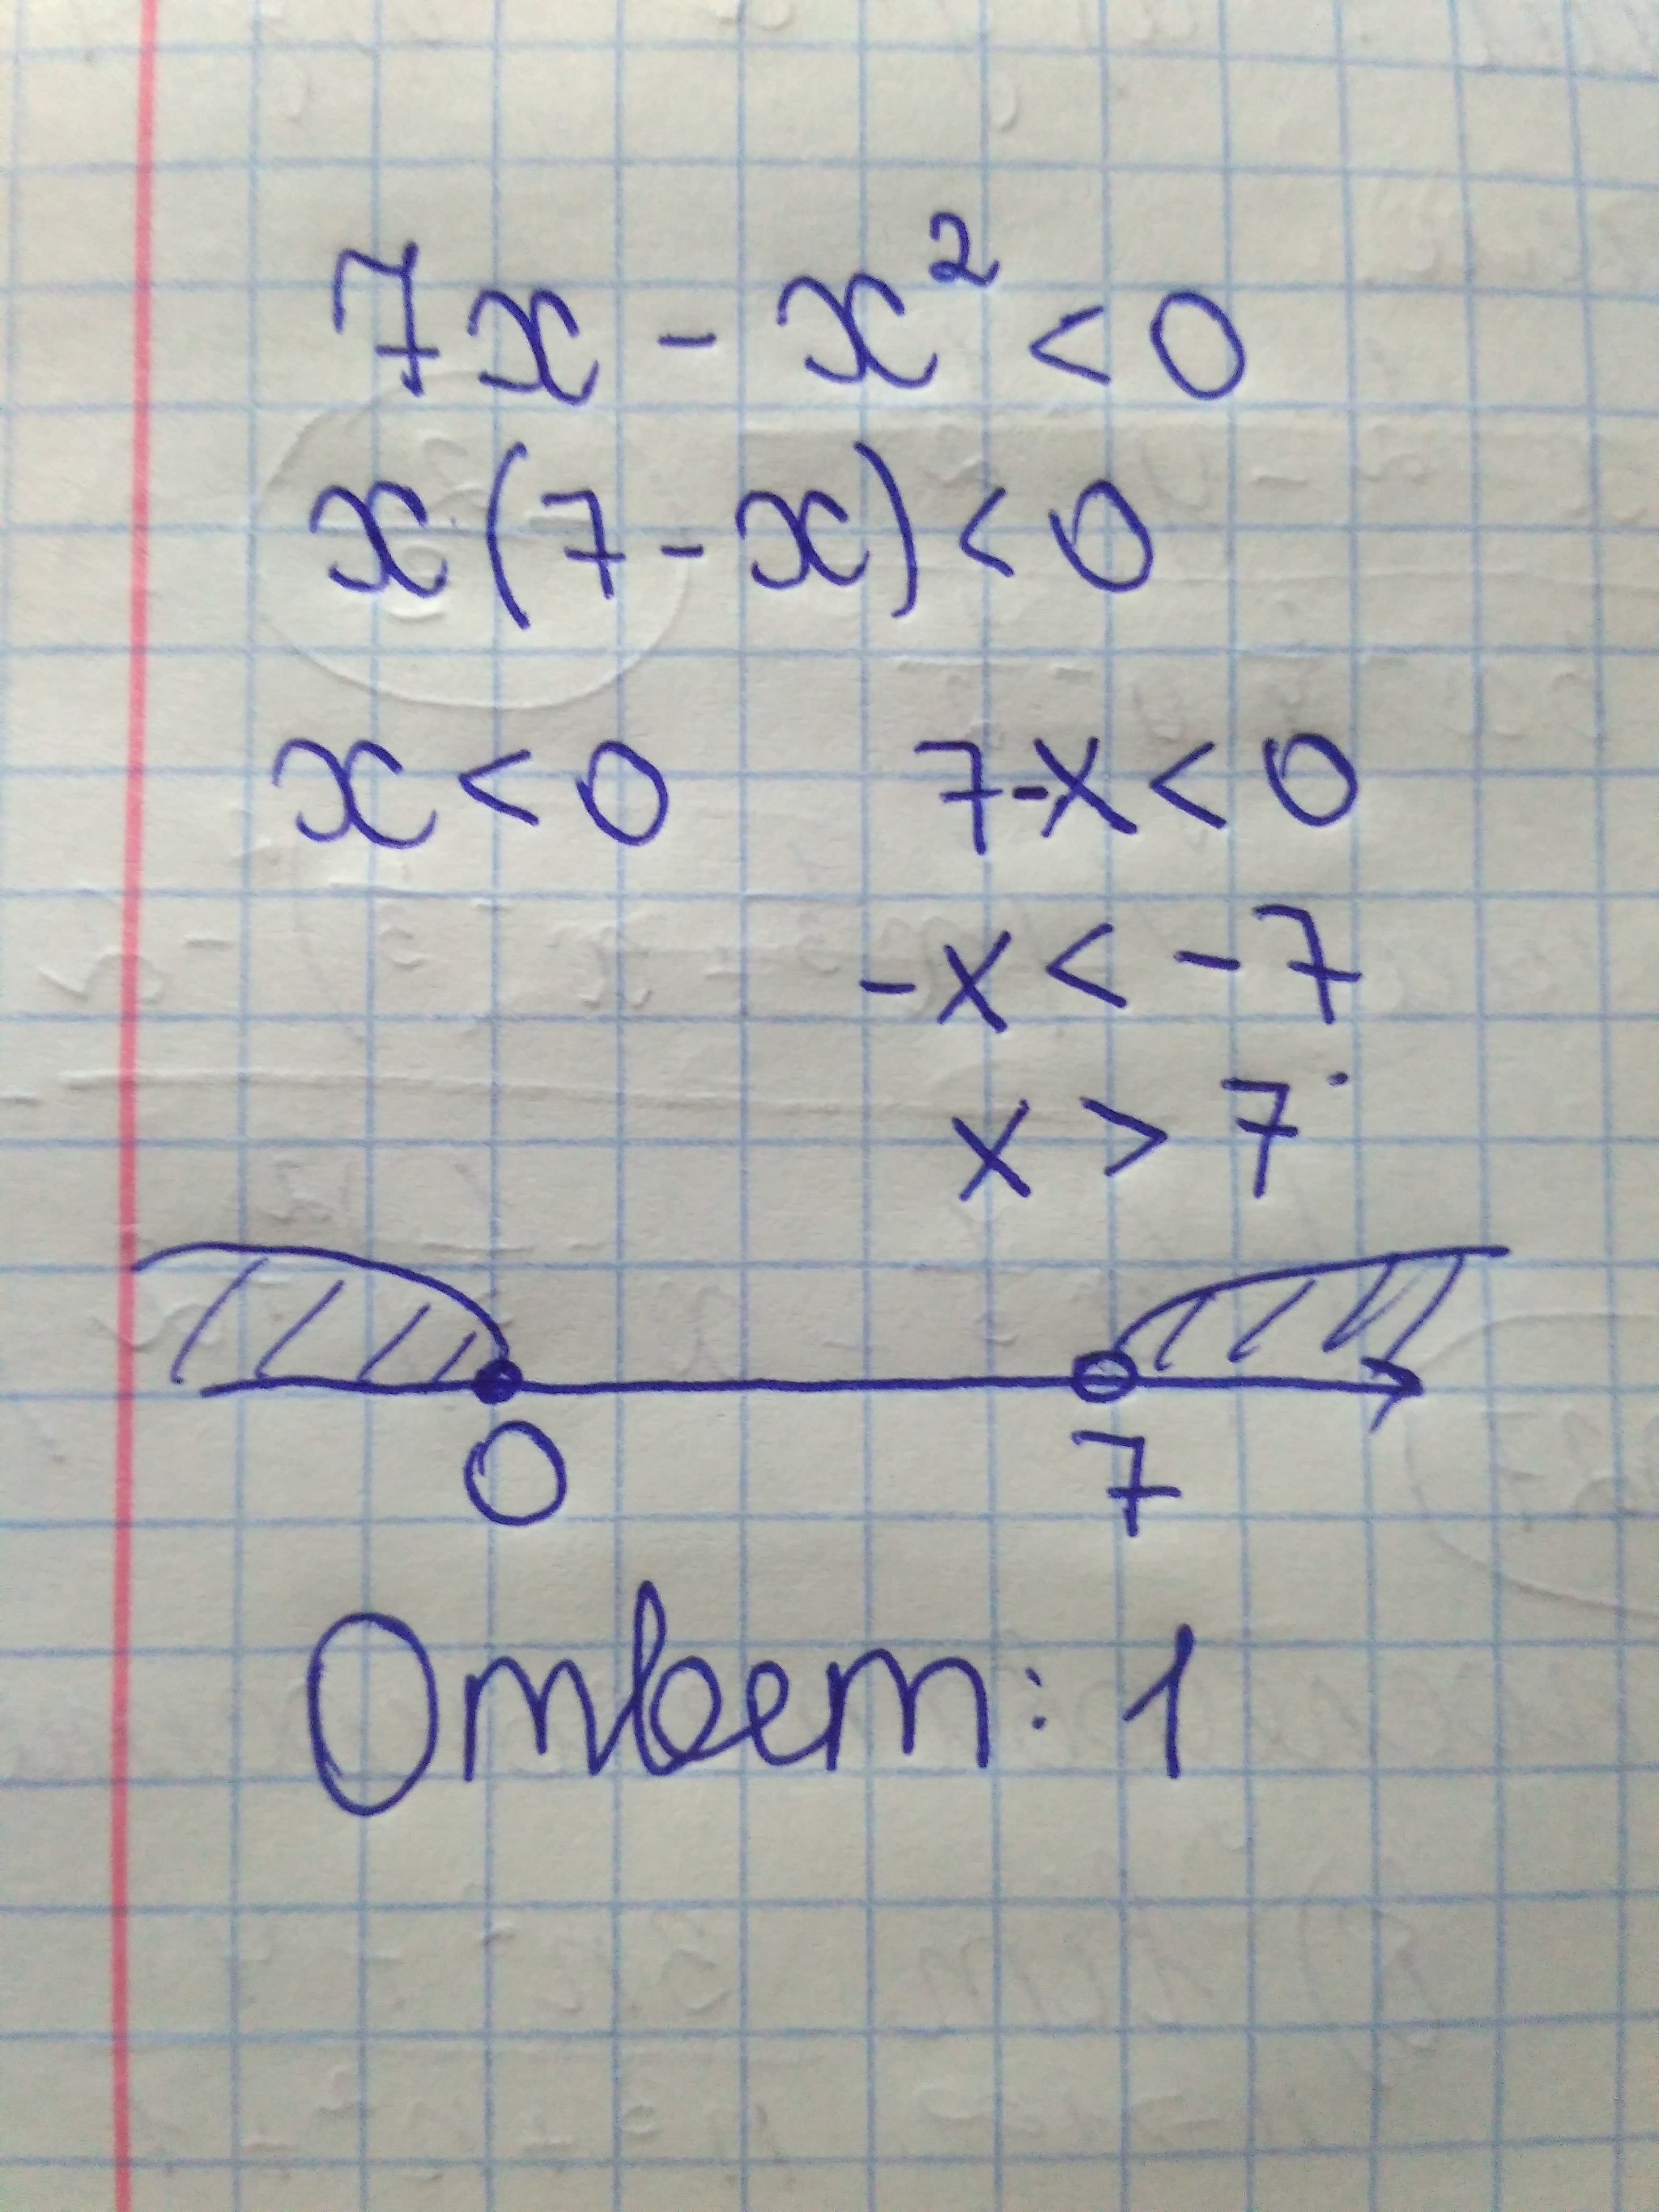 7x - x² < 0
x(7 - x) < 0
x < 0 7-x < 0
-x < -7
x > 7
0 7
Ответ: 1